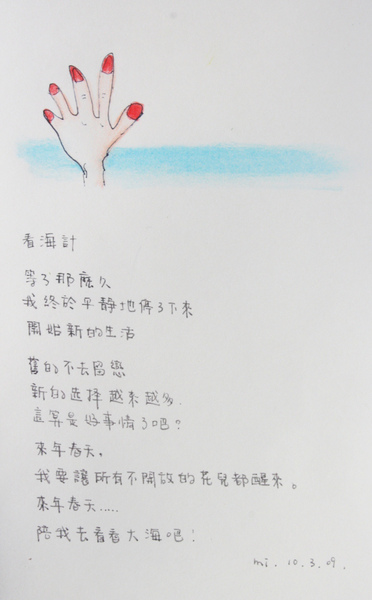 看海計
等了那麼久
我終於平靜地停了下來
開始新的生活
舊的不去留戀
新的选择越來越多.
這算是好事情了吧?
來年春天,
我要讓所有不開放的花兒都醒來。
來年春天.....
陪我去看看大海吧!
mi. 10.3.09.